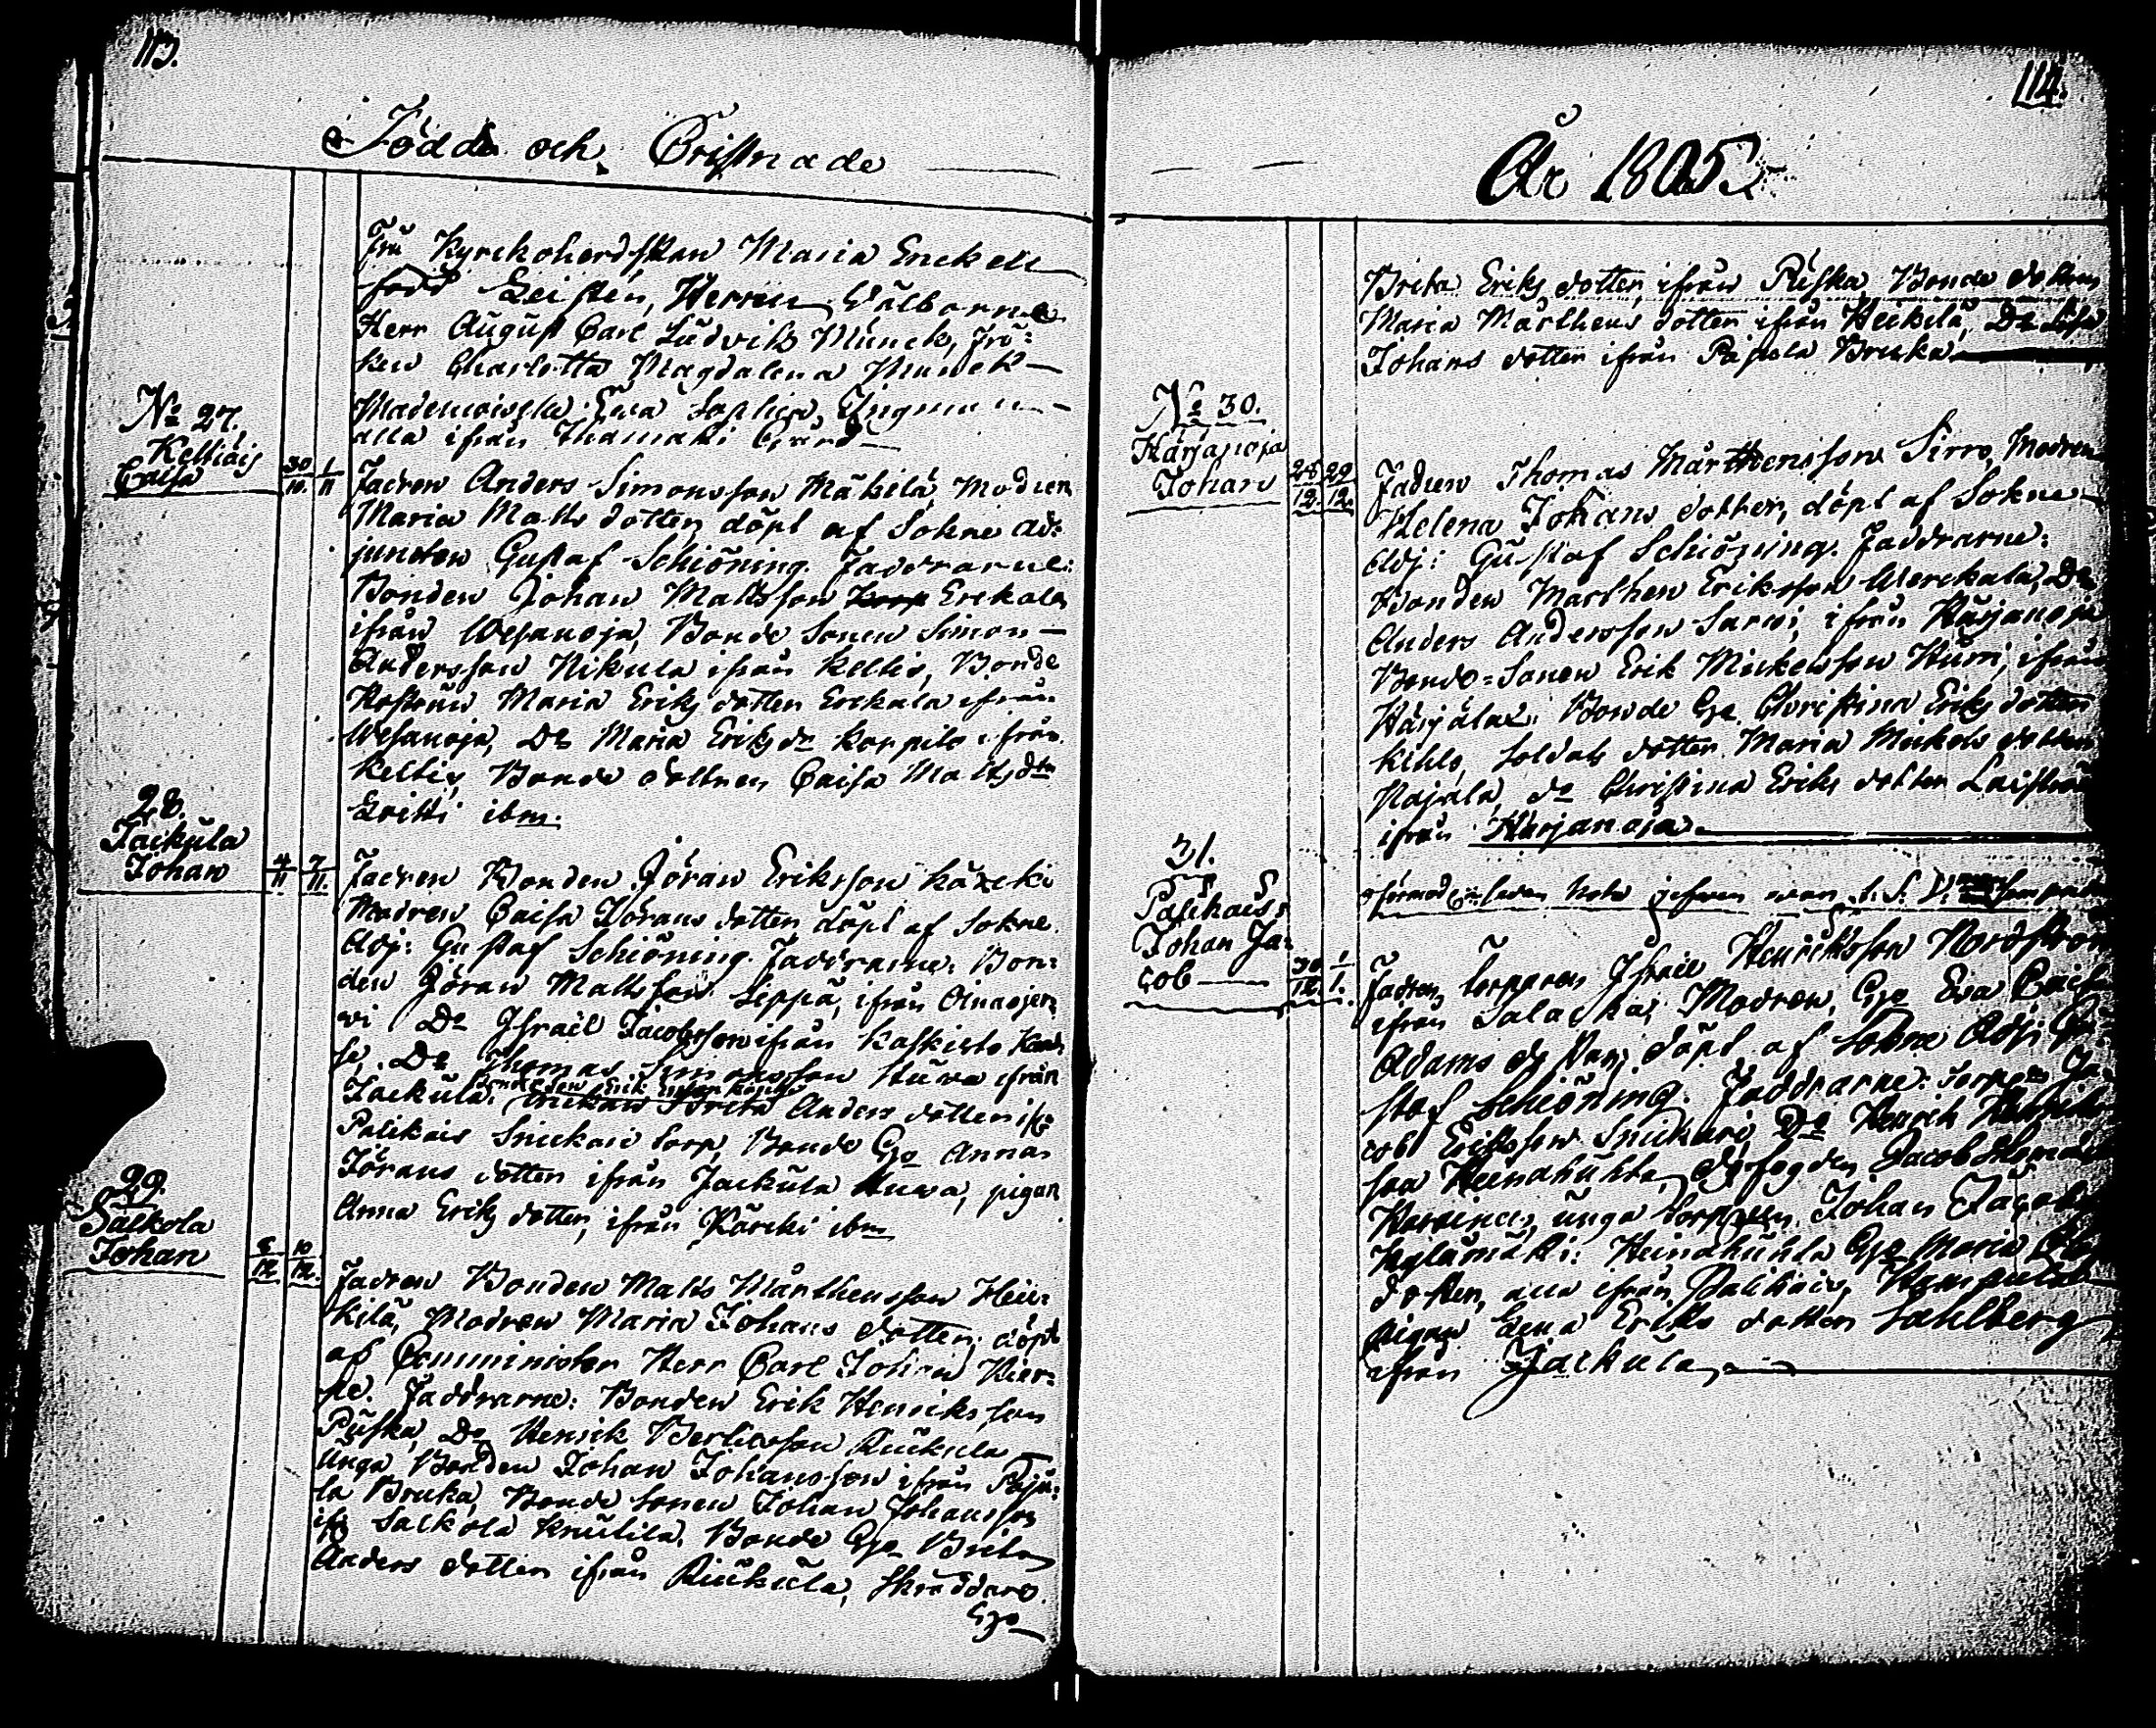 113.
Födde och Cristnade
Fru Kyrckoherdskan Maria Enckell
född Leistén, Herren Välborne
Herr August Carl Ludvik Munck, Frö-
ken Charlotta Magdalena Munck
Mademoiselle Eva Sophia
alla ifrån Ihamäki Gård
No 27.
Keltiais
Caisa
30/10. 1/11
Fadren Anders Simonsson Mäkilä, Modren
Maria Matts dotter, döpt af Sokne ad-
juncten Gustaf Schiöning. Faddrarne:
Bonden Johan Mattsson Erckala
ifrån Wesanoja, Bonde Sonen Simon
Andersson Nikula ifrån Keltis, Bonde
Hustrun Maria Eriks dotter Erckala ifrån
Wesanoja, Do Maria Eriks do Korpilo ifrån
Keltis, Bonde dottren Caisa Matts dr
Eritti ibm.
28.
Jackula
Johan
4/11. 7/11.
Fadren Bonden Jöran Eriksson Kärcki
Modren Caisa Jörans dotter, döpt af Sokne
Adj: Gustaf Schiöning. Faddrarne: Bon-
den Jöran Mattsson Seppä, ifrån Oinasjer-
vi Do Israël Jacobsson ifrån Kaskisto
Do Thomas Simonsson Huwa ifrån
Bonde son Erik
Jackula. Brita Anders dotter ifr
Palikais Snickari Torp, Bonde Ho Anna
Jörans dotter ifrån Jackula Huwa, pigan
Anna Eriks dotter, ifrån Kärcki ibm
29.
Salkola
Johan
8/12. 10/12.
Fadren Bonden Matts Mårthensson Hei-
kilä, Modren Maria Johans dotter, döpt
af Comminister Herr Carl Johan
Faddrarne: Bonden Erik Henriksson
Puska, Do Henrik Bertilsson Riukula
Unga Bonden Johan Johansson ifrån Paju-
la Bruka, Bonde Sonen Johan Johansson
ifr Salkola Knutila. Bonde Ho Brita
Anders dotter ifrån Riukula, Skräddare
Ho
114.
År 1805.
Brita Eriks dotter ifrån Puska, Bonde dottren
Maria Mårthens dotter ifrån Heikilä, Do Lisa
Johans dotter ifrån Pajula Bruka
No 30.
Härjanoja
Johan
28/12. 29/12.
Fadren Thomas Mårthensson Sirro, Modren
Helena Johans dotter, döpt af Sokne
Adj: Gustaf Schiöning. Faddrarne:
Bonden Marthen Eriksson Werckala, Do
Anders Andersson Sarvi, ifrån Härjanoja
Bonde-Sonen Erik Mickelsson Hurri, ifrån
Härjälax. Bonde Ho Christina Eriks dotter
Kihlo, Soldats dotter Maria Mickels dotter
Rajala, do Christina Eriks dotter
ifrån Härjanoja.
31.
Palikais
Johan Ja-
cob
30/12. 1/1.
Fadren, Torpparen Israel Henriksson Nordström
ifrån Salacka, Modren, Ho Eva Caisa
Adams döpt af Sokne Adj: Gu-
staf Schiöning. Faddrarne: Ja-
cob Eriksson Snickari, Do Henrich Henriks-
son Heinähuhta, Jacob
unga Johan Jacobs
Kylämäki: Heinähuhta Ho Maria
dotter, alla ifrån Palikais,
pigan Lena Eriks dotter Sahlberg
ifrån Jackula